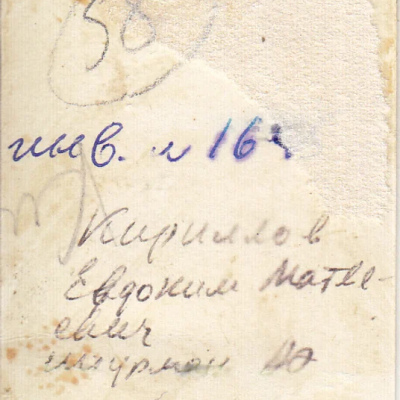 58
инв. № 16
Кириллов
Евдоким Матве-
евич
штурман